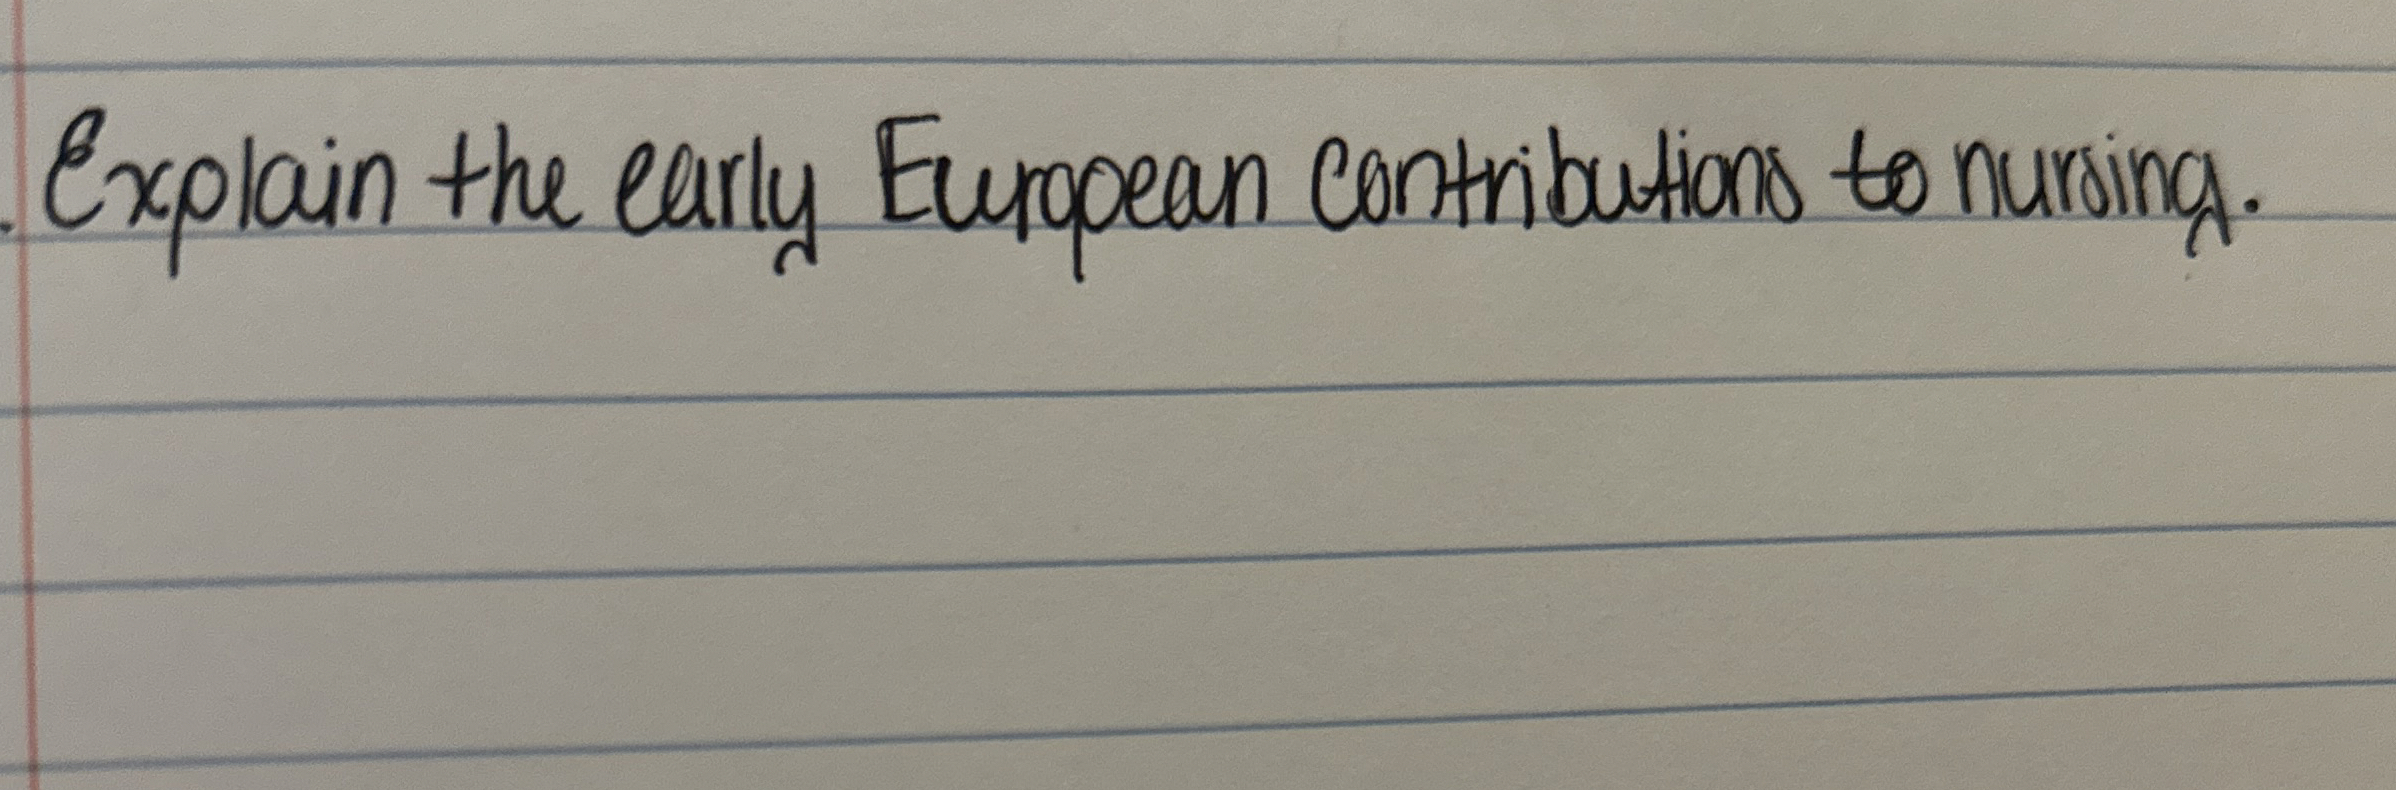 . Explain the early European contributions to nursing.